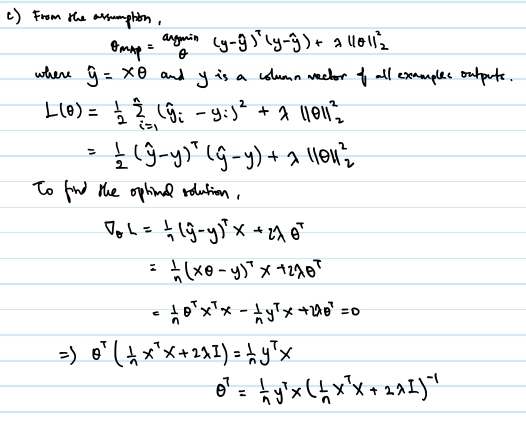 c) From the assumption,
θ_MAP = argmin_θ (y-ŷ)ᵀ(y-ŷ) + λ||θ||₂²
where ŷ = Xθ and y is a column vector of all examples outputs.
L(θ) = 1/2 Σ_{i=1}^{n} (ŷᵢ - yᵢ)² + λ||θ||₂²
= 1/2 (ŷ-y)ᵀ(ŷ-y) + λ||θ||₂²
To find the optimal solution,
∇_θ L = 1/n (ŷ-y)ᵀ X + 2λθᵀ
= 1/n (Xθ - y)ᵀ X + 2λθᵀ
= 1/n θᵀXᵀX - 1/n yᵀX + 2λθᵀ = 0
=> θᵀ (1/n XᵀX + 2λI) = 1/n yᵀX
θᵀ = 1/n yᵀX (1/n XᵀX + 2λI)⁻¹